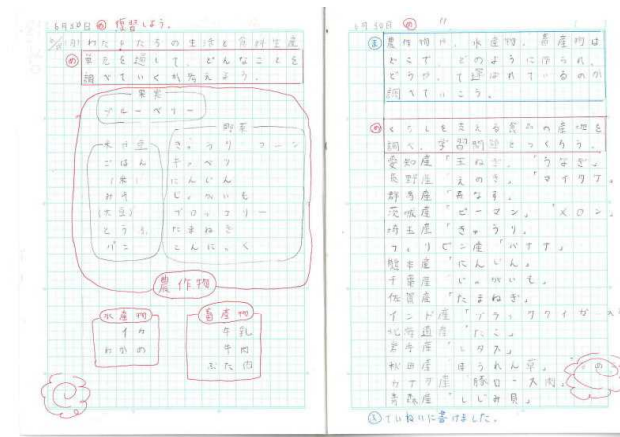 6月30日 復習しよう。
わたしたちの生活と食料生産
め 単元を通して、どんなことを
調べていくか考えよう。
果実
ブルーベリー
野菜
米 大豆
きゅうり コーン
ごはん
キャベツ
(米)
にんじん
みそ
じゃがいも
(大豆)
ブロッコリー
とうふ
たまねぎ
パン
にんにく
農作物
水産物
イカ
わかめ
畜産物
牛乳
牛肉
ぶた肉
6月30日
ま 農作物や、水産物、畜産物は
どこで どのように作られ、
どうやって運ばれているのか
調べていこう。
め くらしを支える食品の産地を
調べ、学習問題をつくろう。
愛知産「玉ねぎ」「うなぎ」
長野産「えのき」「マイタケ」
群馬産「長なす」
茨城産「ピーマン」「メロン」
埼玉産「きゅうり」
フィリピン産「バナナ」
熊本産「にんじん」
千葉産「じゃがいも」
佐賀産「たまねぎ」
インド産「ブラックタイガー
北海道産「たこ」
岩手産「レタス」
秋田産「ほうれん草」
カナダ産「豚ロース肉」
青森産「しじみ貝」
ていねいに書けました。